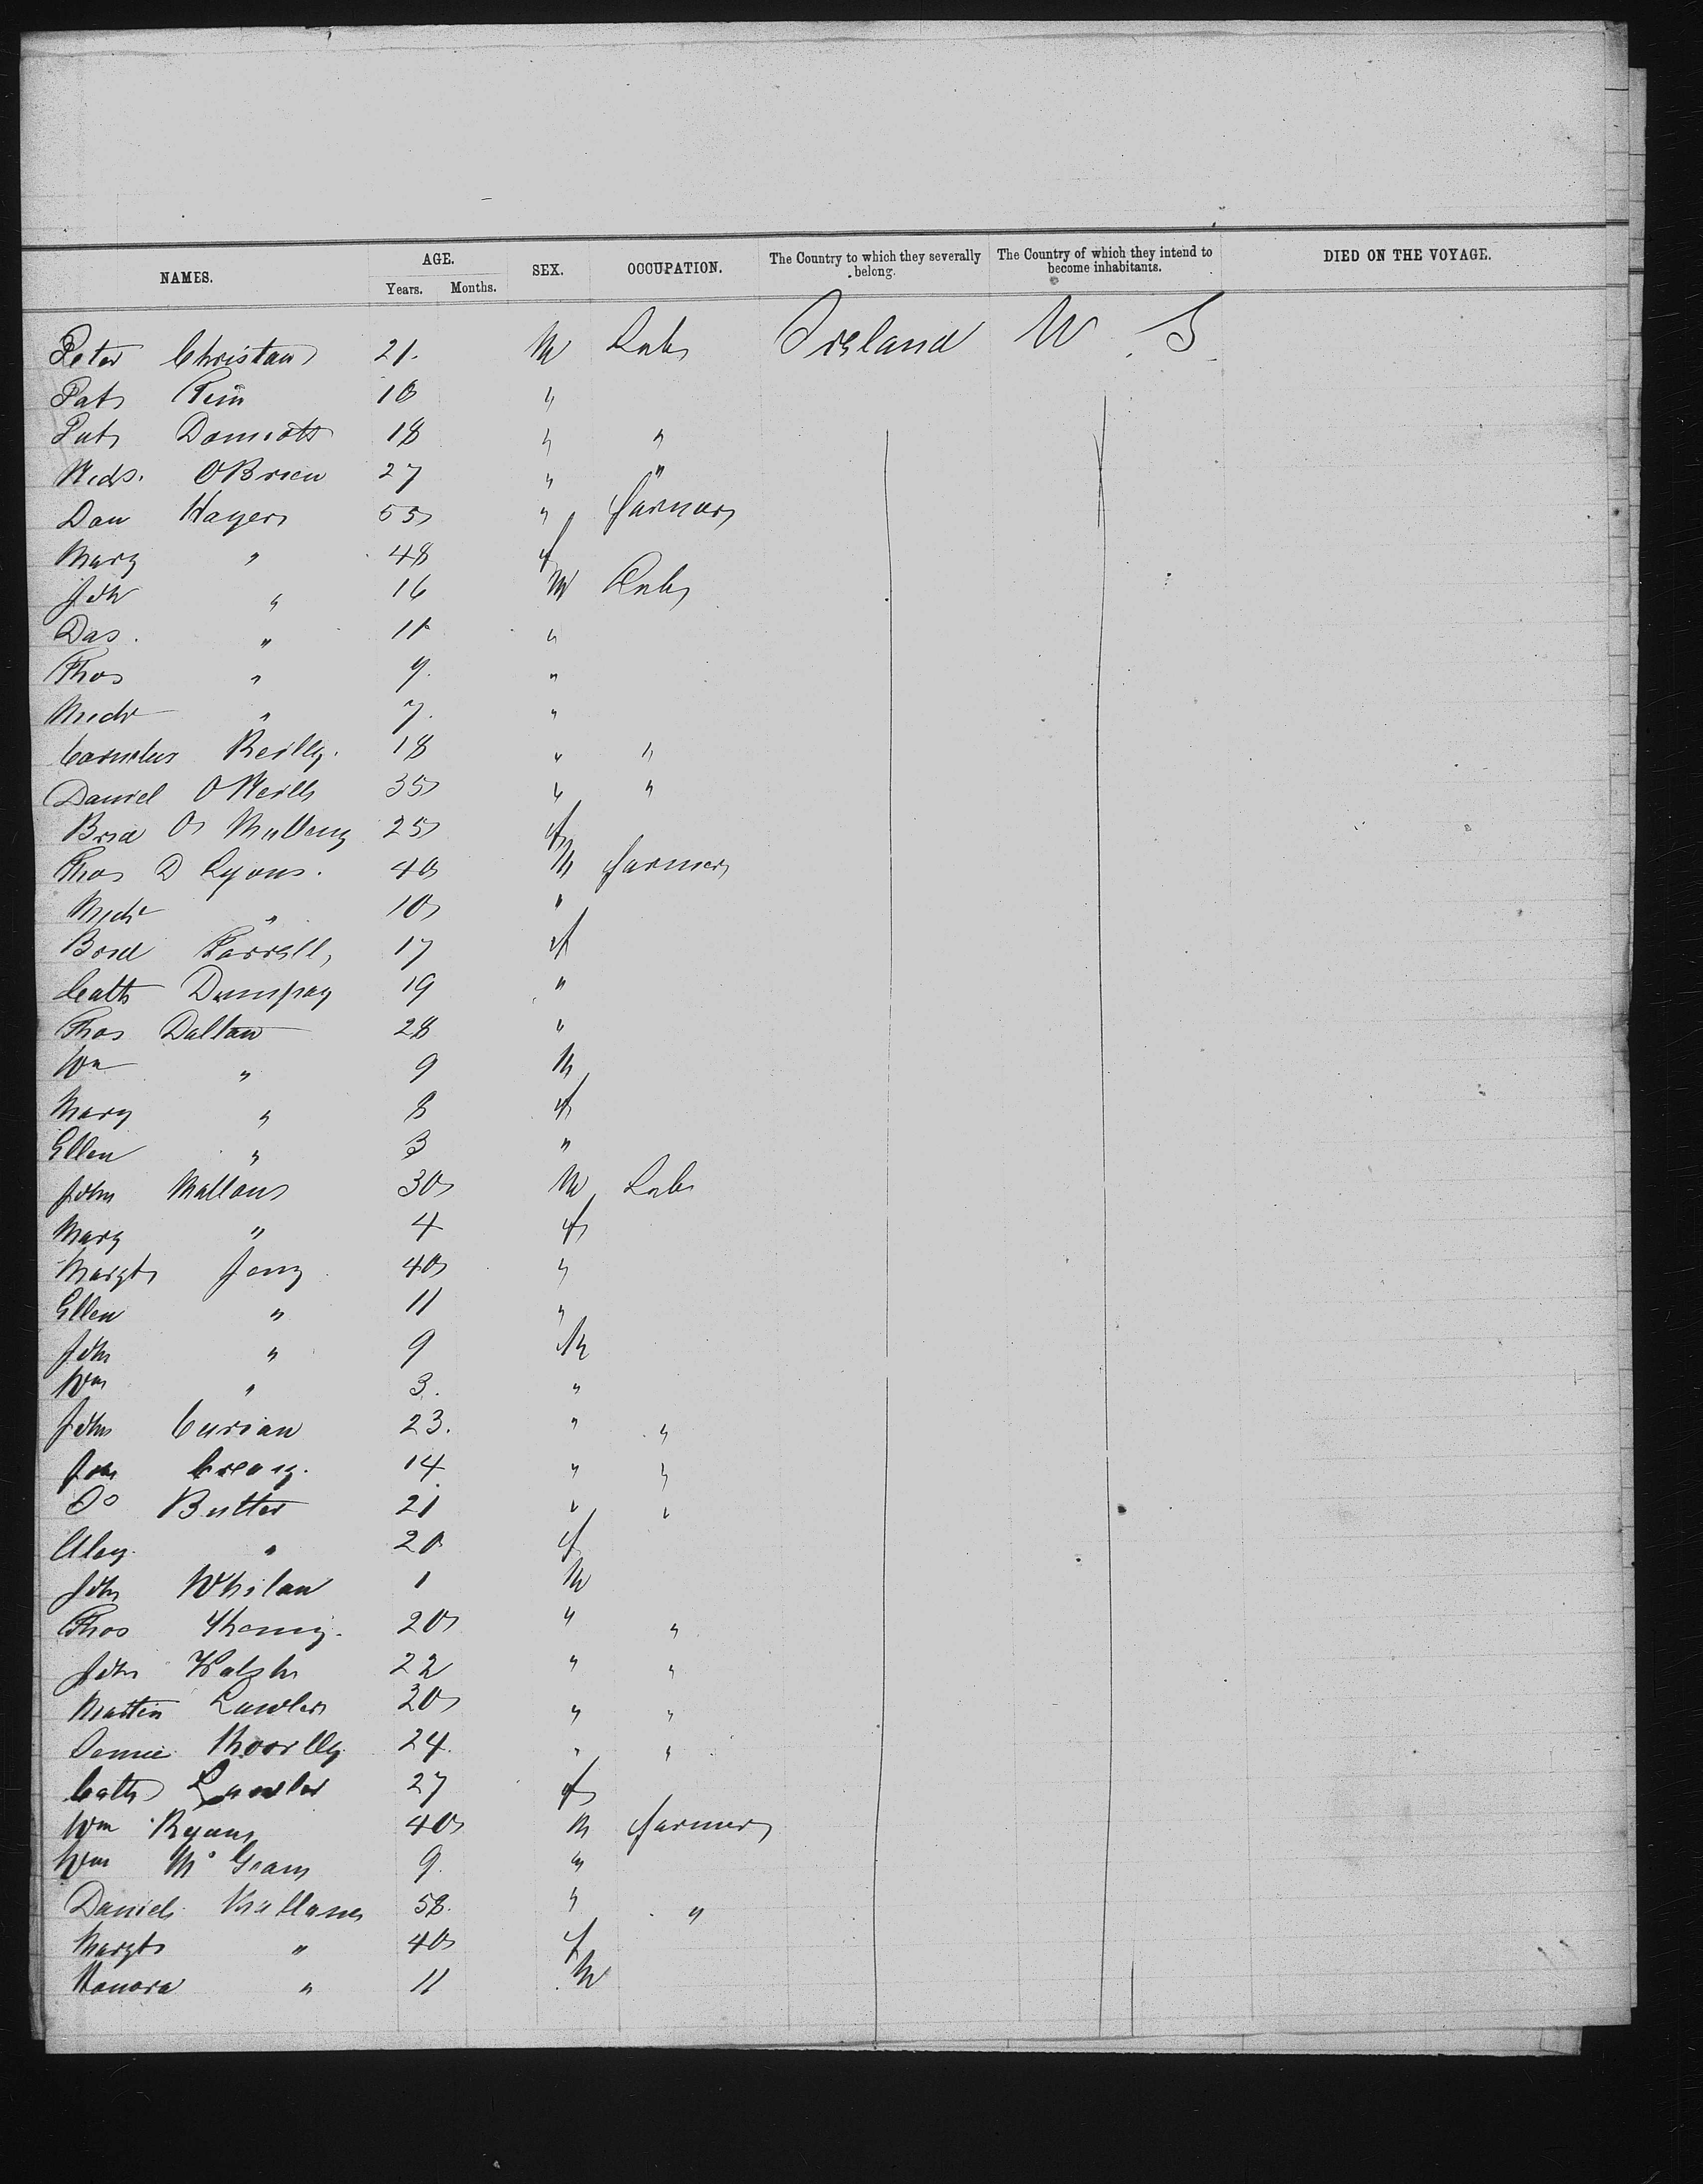 NAMES. AGE. Years. Months. SEX. OCCUPATION. The Country to which they severally belong. The Country of which they intend to become inhabitants. DIED ON THE VOYAGE.
Peter Christian 21. M Lab Ireland U. S
Pat 10 "
Pat 18 " "
Nichs. OBrien 27 " "
Dan Hayes 55 " farmer
Mary " 48 f
Joh " 16 M Lab
Das. " 11 "
Thos " 9. "
Mich " 7. "
Cornelus Reilly. 18 " "
Daniel ONeill 35 " "
Brid O Mullony 25 f
Thos D Lyons. 40 M farmer
Mich " 10 "
Brid Farrell 17 f
Cath Dumpay 19 "
Thos Daltan 28 "
Wm " 9 M
Mary " 8 f
Ellen " 3 "
John Mallons 30 M Lab
Mary " 4 f
Margt 40 "
Ellen " 11 "
John " 9 M
Wm " 3. "
John Curian 23. " "
Joh Creary. 14 " "
Do Butter 21 " "
" 20 f
John Whelan 1 M
Thos 20 " "
John Walsh 22 " "
Martin Lawler 20 " "
24. " "
Cath Lawler 27 f
Wm Ryans 40 M farmer
Wm Mc 9. "
Daniel Mullane 58. " "
Margt " 40 f
Honora " 11 M